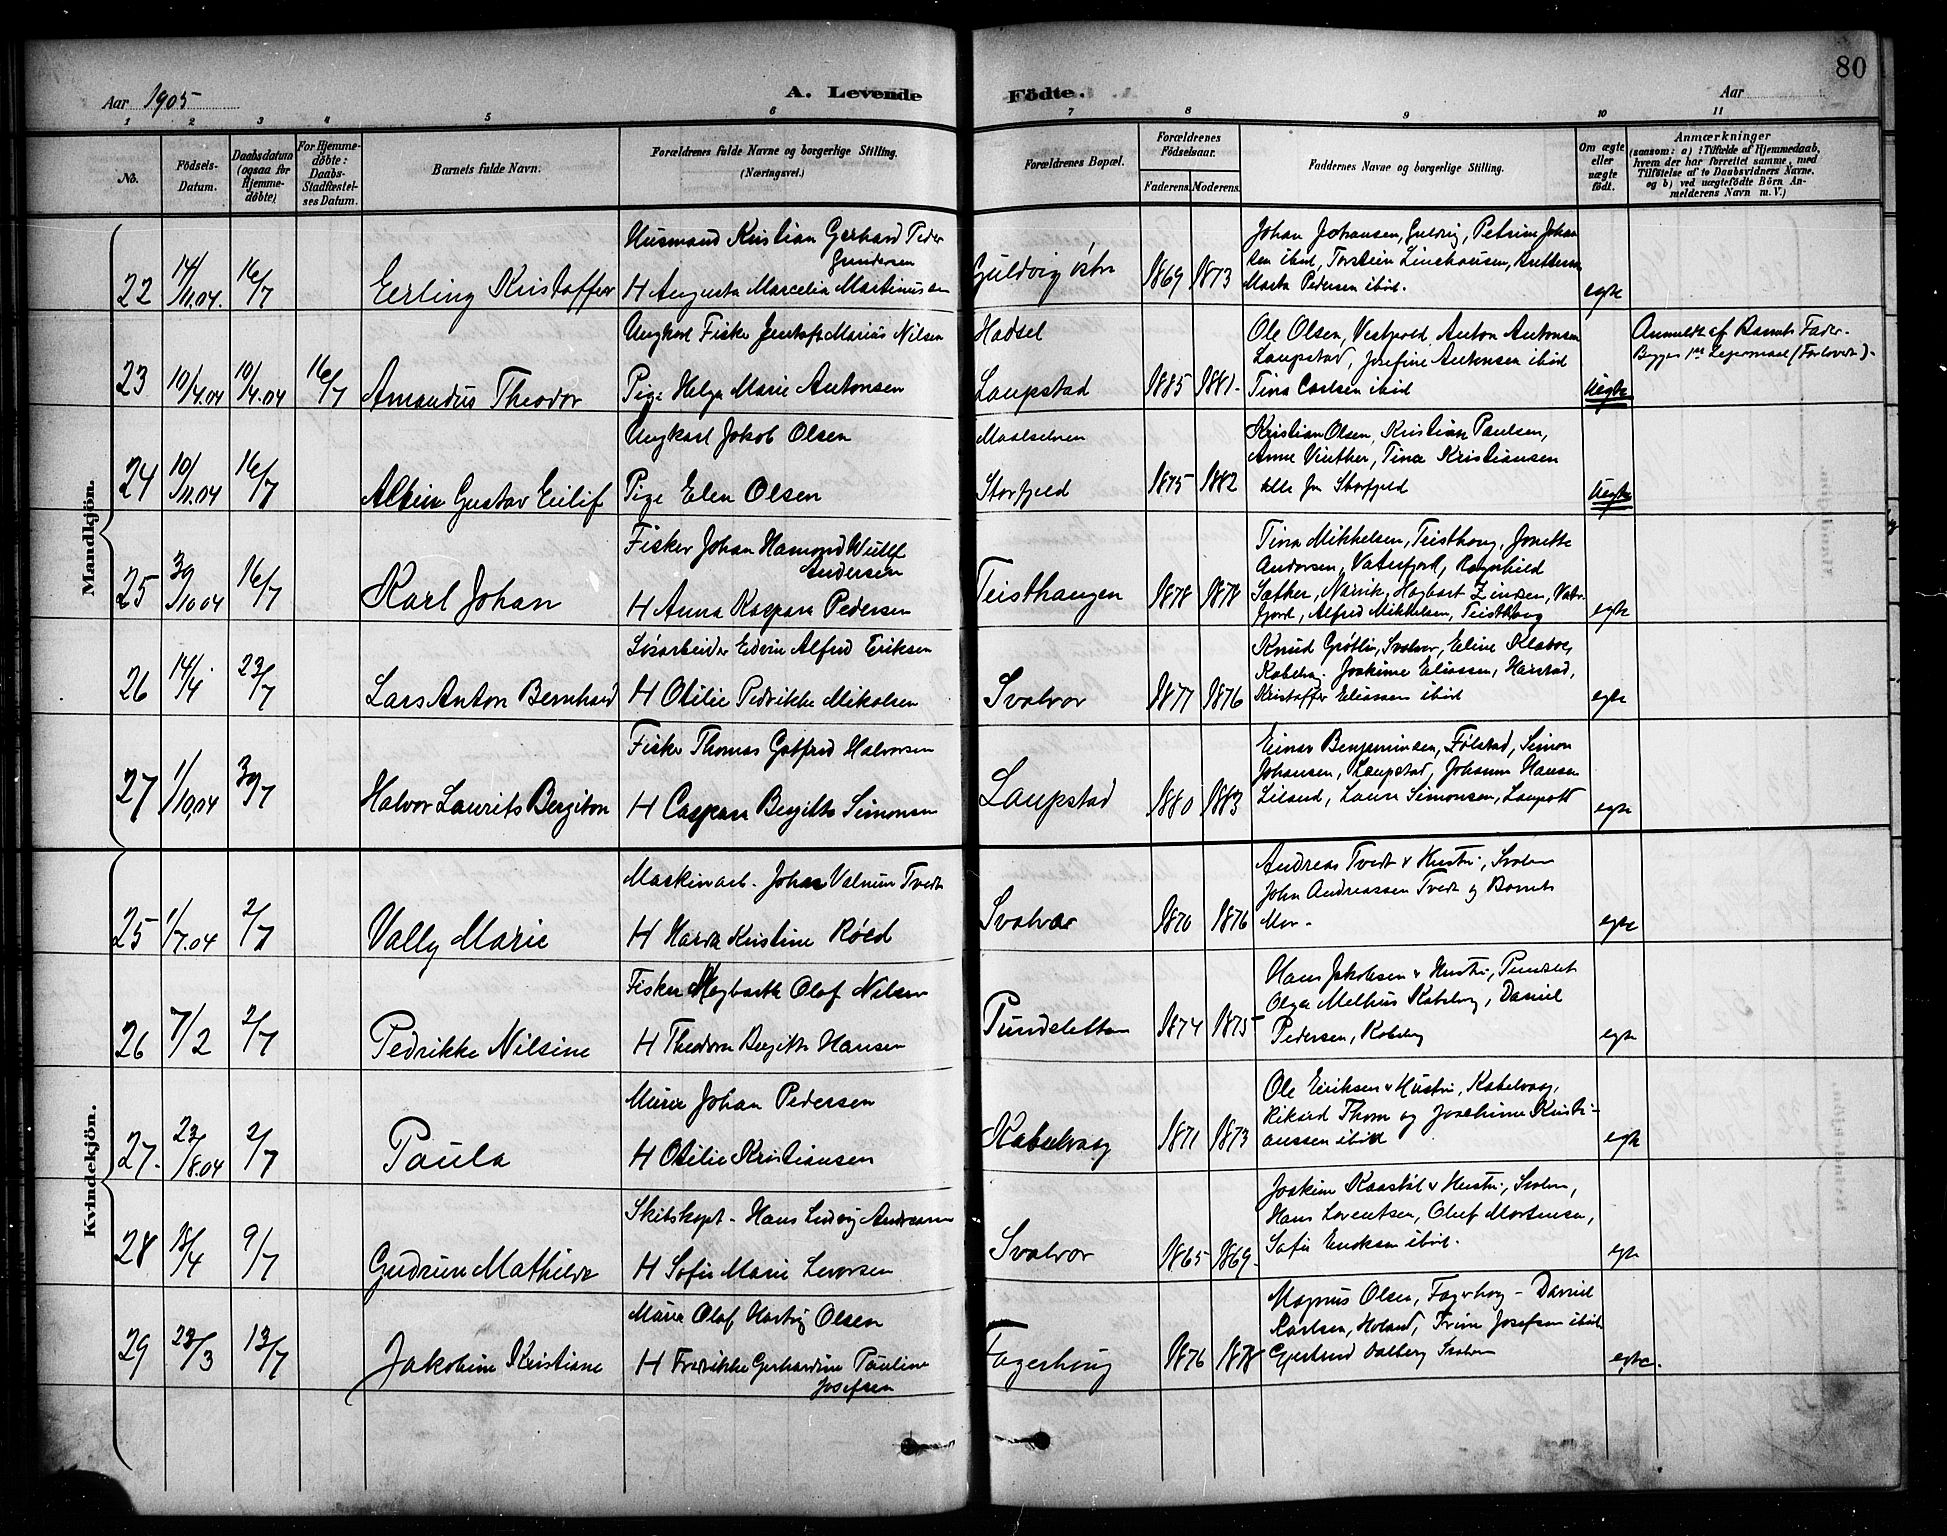 Aar 1905
A. Levende Födte.
Aar
80
1 2 3 4 5 6 7 8 9 10 11
No.
Födsels-Datum.
Daabsdatum (ogsaa for Hjemme-döbte)
For Hjemme-döbte: Daabs-Stadfæstel-ses Datum.
Barnets fulde Navn.
Forældrenes fulde Navne og borgerlige Stilling. (Næringsvei.)
Forældrenes Bopæl.
Forældrenes Födselsaar.
Faderens. Moderens.
Faddernes Navne og borgerlige Stilling.
Om ægte eller uægte födt.
Anmærkninger
(saasom: a) i Tilfælde af Hjemmedaab, hvem der har forrettet samme, med Tilföielse af to Daabsvidners Navne, og b) ved uægtefödte Börn An-melderens Navn m. V.)
Mandkjön.
22 14/11.04. 16/7 Erling Kristoffer
Husmand Kristian Gerhard Peder Gundersen
H Augusta Marcelia Martinussen
Guldvig östre 1869 1873
Johan Johansen, Guldvig, Petrine Johan
sen ibid, Torstein
Marta Pedersen ibid.
egte
23 10/4.04 10/4.04 16/7 Amandus Theodor
Ungkarl Fisker Jentoft Marius Nilsen
Pige Helga Marie Antonsen
Hadsel
Laupstad 1885 1881
Ole Olsen, Vestpold, Anton Antonsen
Laupstad, Josefine Antonsen ibid
Tina Carlsen ibid
Uegte
Anmeldt af Barnets Fader.
Begges 1ste Leiermaal (Forlovet).
24 10/11.04 16/7 Albin Gustav Eilif
Ungkarl Jakob Olsen
Pige Elen Olsen
Maalselven
Storfjeld 1875 1882
Kristian Olsen, Kristian Paulsen,
Anne Vinther, Tina Kristiansen
alle fra Storfjeld
Uegte
25 30/10 04 16/7 Karl Johan
Fisker Johan Hamond Wulff Andersen
H Anna Kaspara Pedersen
Teisthaugen 1878 1878
Tina Mikkelsen, Teisthaug, Jonette
Andorsen, Vaterfjord, Ragnhild
Sæther, Narvik, Hagbart Zinsen, Vater
fjord, Alfred Mikkelsen, Teisthaug
egte
26 14/4 23/7 Lars Anton Bernhard
Løsarbeider Edvin Alfred Eriksen
H Otilie Pedrikke Mikalsen
Svolvær 1877 1876
Knud Grøtlin, Svolvær, Eline Klaboe,
Kabelvag. Joakime Eliassen, Harstad,
Kristoffer Eliassen ibid
egte
27 1/10.04 30/7 Halvor Laurits Bergiton
Fisker Thomas Gotfred Halvorsen
H Caspara Bergitte Simonsen
Laupstad 1880 1883
Einar Benjaminsen, Følstad, Simon
Johansen, Laupstad, Johanna Hansen
Liland, Laura Simonsen, Laupstd
egte
Kvindekjön.
25 1/7.04 2/7 Vally Marie
Maskinarb. Johan Valnum Tvedt
H Kristine Røed
Svolvær 1870 1876
Andreas Tvedt & Hustru, Svolvær
John Andreassen Tvedt og Barnets
Mor.
egte
26 7/2 2/7 Pedrikke Nilsine
Fisker Hagbarth Olaf Nilsen
H Theodora Bergitte Hansen
Pundsletten 1874 1875
Hans Jakobsen & Hustru, Pundslet
Olga Melhus Kabelvg, Daniel
Pedersen, Kabelvg
egte
27. 23/8.04 2/7 Paula
Murer Johan Pedersen
H Otilie Kristiansen
Kabelvaag 1871 1873
Ole Eriksen & Hustru, Kabelvaag,
Rikard Thom og Joachime Kristi-
anssen ibid
egte
28 9/7 Gudrun Mathilde
Skibskapt. Hans Ludvig Andreassen
H Sofie Marie Levorsen
Svolvær 1865 1869
Joakim Kaasbøl & Hustru, Svolvær,
Hans Lorentsen, Oluf Mortensen,
Sofie Eriksen ibid.
egte
29 23/3 13/7 Jakobine Kristiane
Murer Olaf Hartvig Olsen
H Fredrikke Gerhardine Pauline Josefsen
Fagerhaug 1876 1878
Magnus Olsen, Fagerhaug - Daniel
Karlsen, Holand, Trine Josefsen ibid
Gjertrud Dalberg Svolvær
egte.